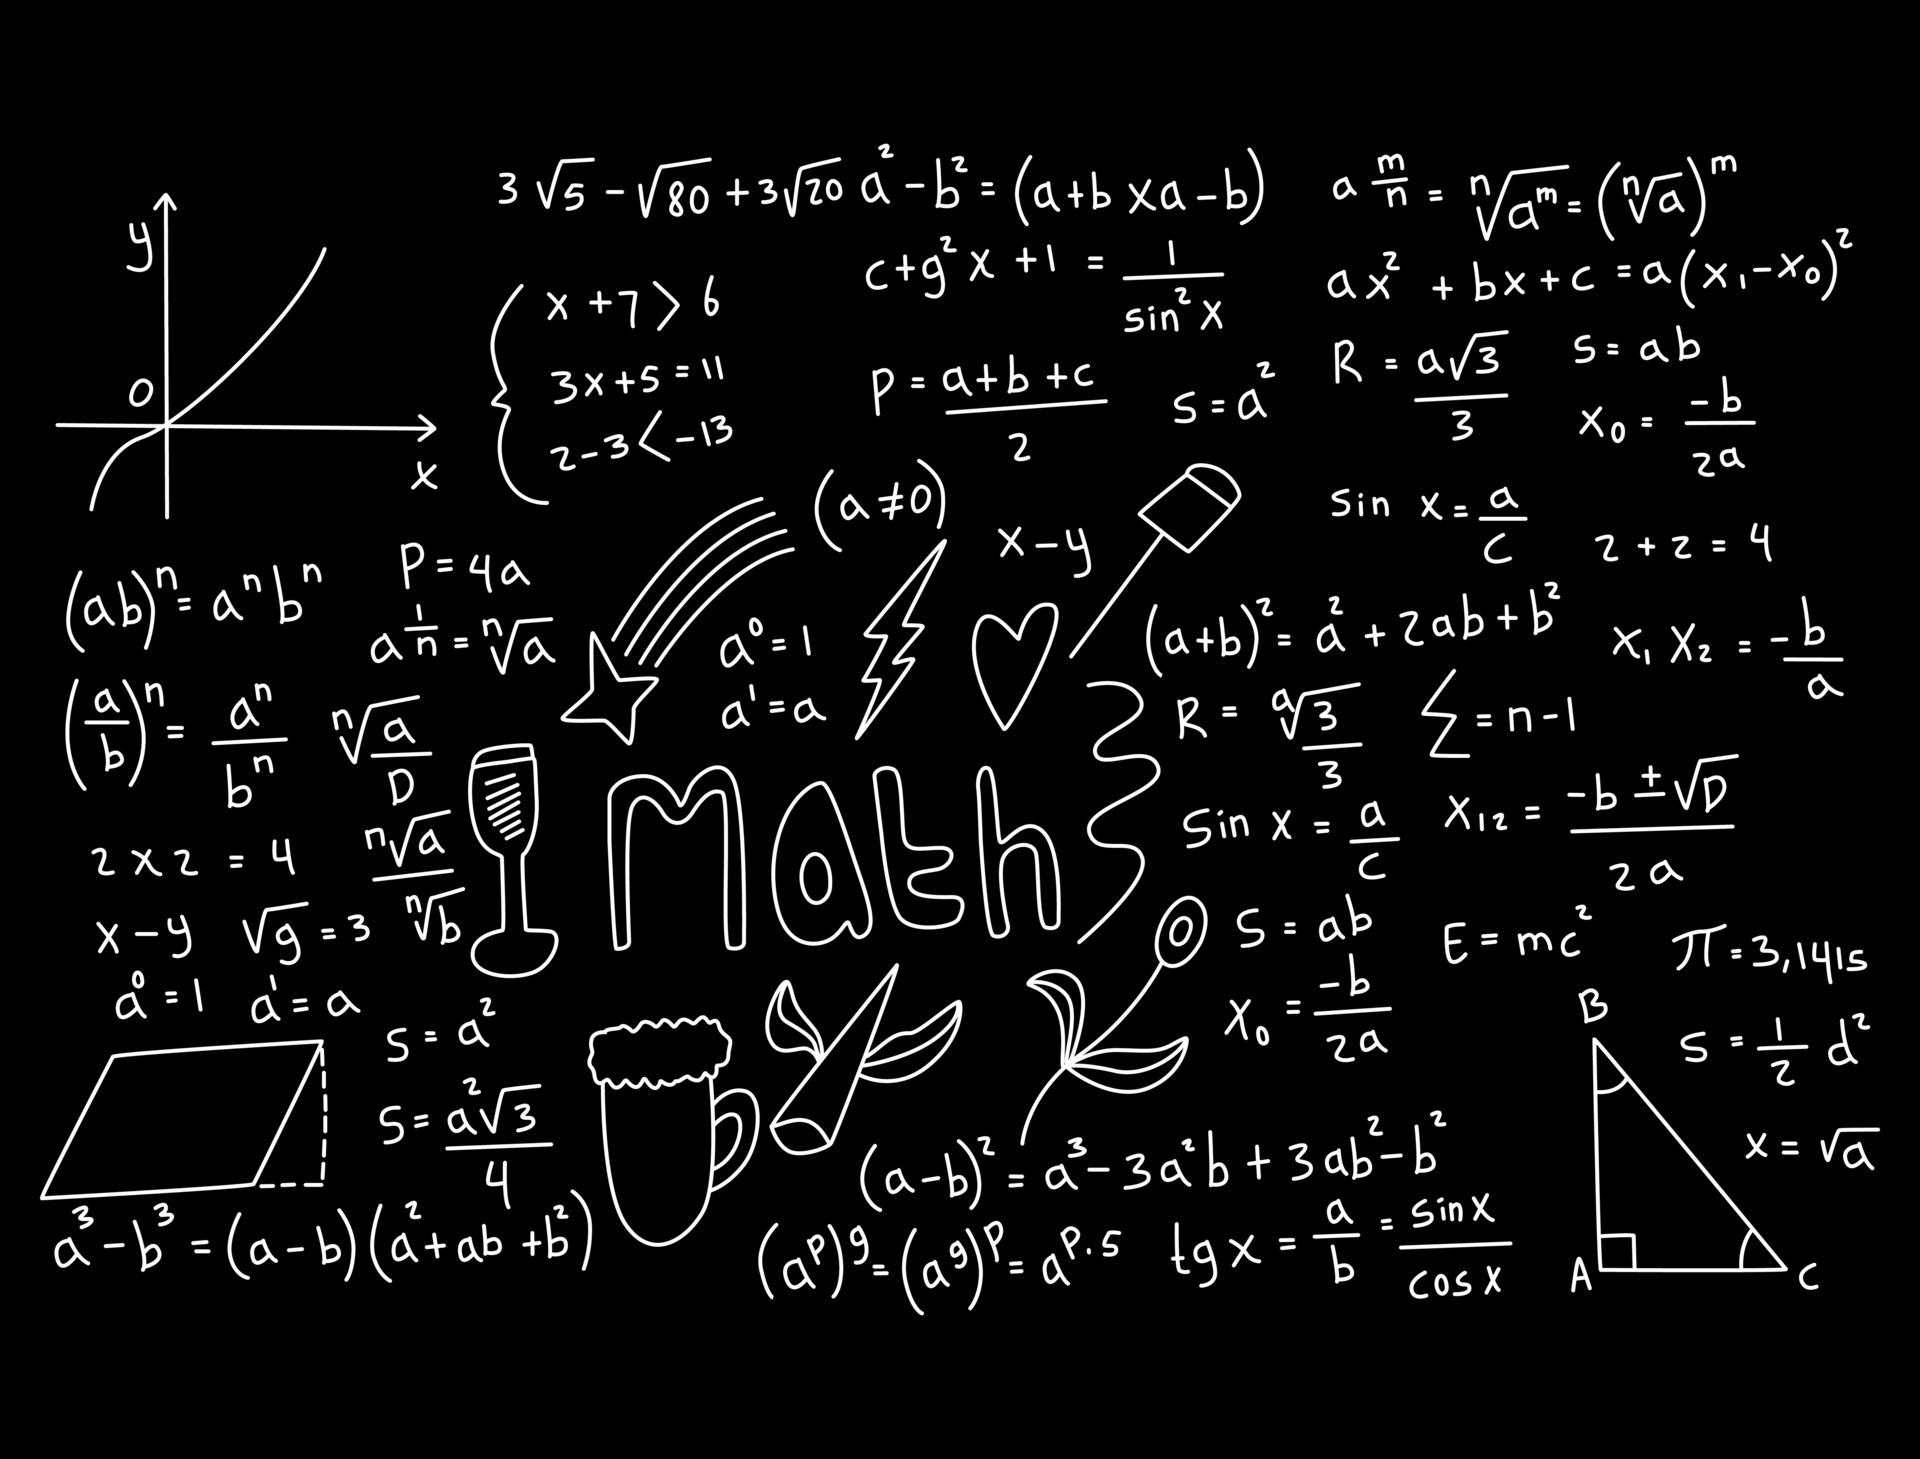 y
0
x
3√5 - √80 + 3√20 a² - b² = (a+b x a - b)
a m/n = ⁿ√aᵐ = (ⁿ√a)ᵐ
c+g² x + 1 = 1/sin² x
ax² + bx + c = a(x₁ - x₀)²
x + 7 > 6
3x + 5 = 11
2 - 3 < -13
P = a+b+c/2
S = a²
R = a√3/3
S = ab
x₀ = -b/2a
(a ≠ 0)
x - y
sin x = a/c
2 + 2 = 4
(ab)ⁿ = aⁿbⁿ
P = 4a
a 1/n = ⁿ√a
a⁰ = 1
a¹ = a
(a+b)² = a² + 2ab + b²
x₁ x₂ = -b/a
(a/b)ⁿ = aⁿ/bⁿ
ⁿ√a/D
R = ᵃ√3/3
Σ = n - 1
Math
2 x 2 = 4
ⁿ√a/ⁿ√b
Sin x = a/c
x₁₂ = -b ± √D/2a
x - y
√g = 3
S = ab
E = mc²
π = 3,1415
a⁰ = 1
a¹ = a
S = a²
x₀ = -b/2a
B
S = 1/2 d²
S = a²√3/4
(a-b)² = a³ - 3a²b + 3ab² - b²
x = √a
a³ - b³ = (a-b)(a² + ab + b²)
(aᵖ)ᵍ = (aᵍ)ᵖ = aᵖ·⁵
tg x = a/b = sin x/cos x
A
C